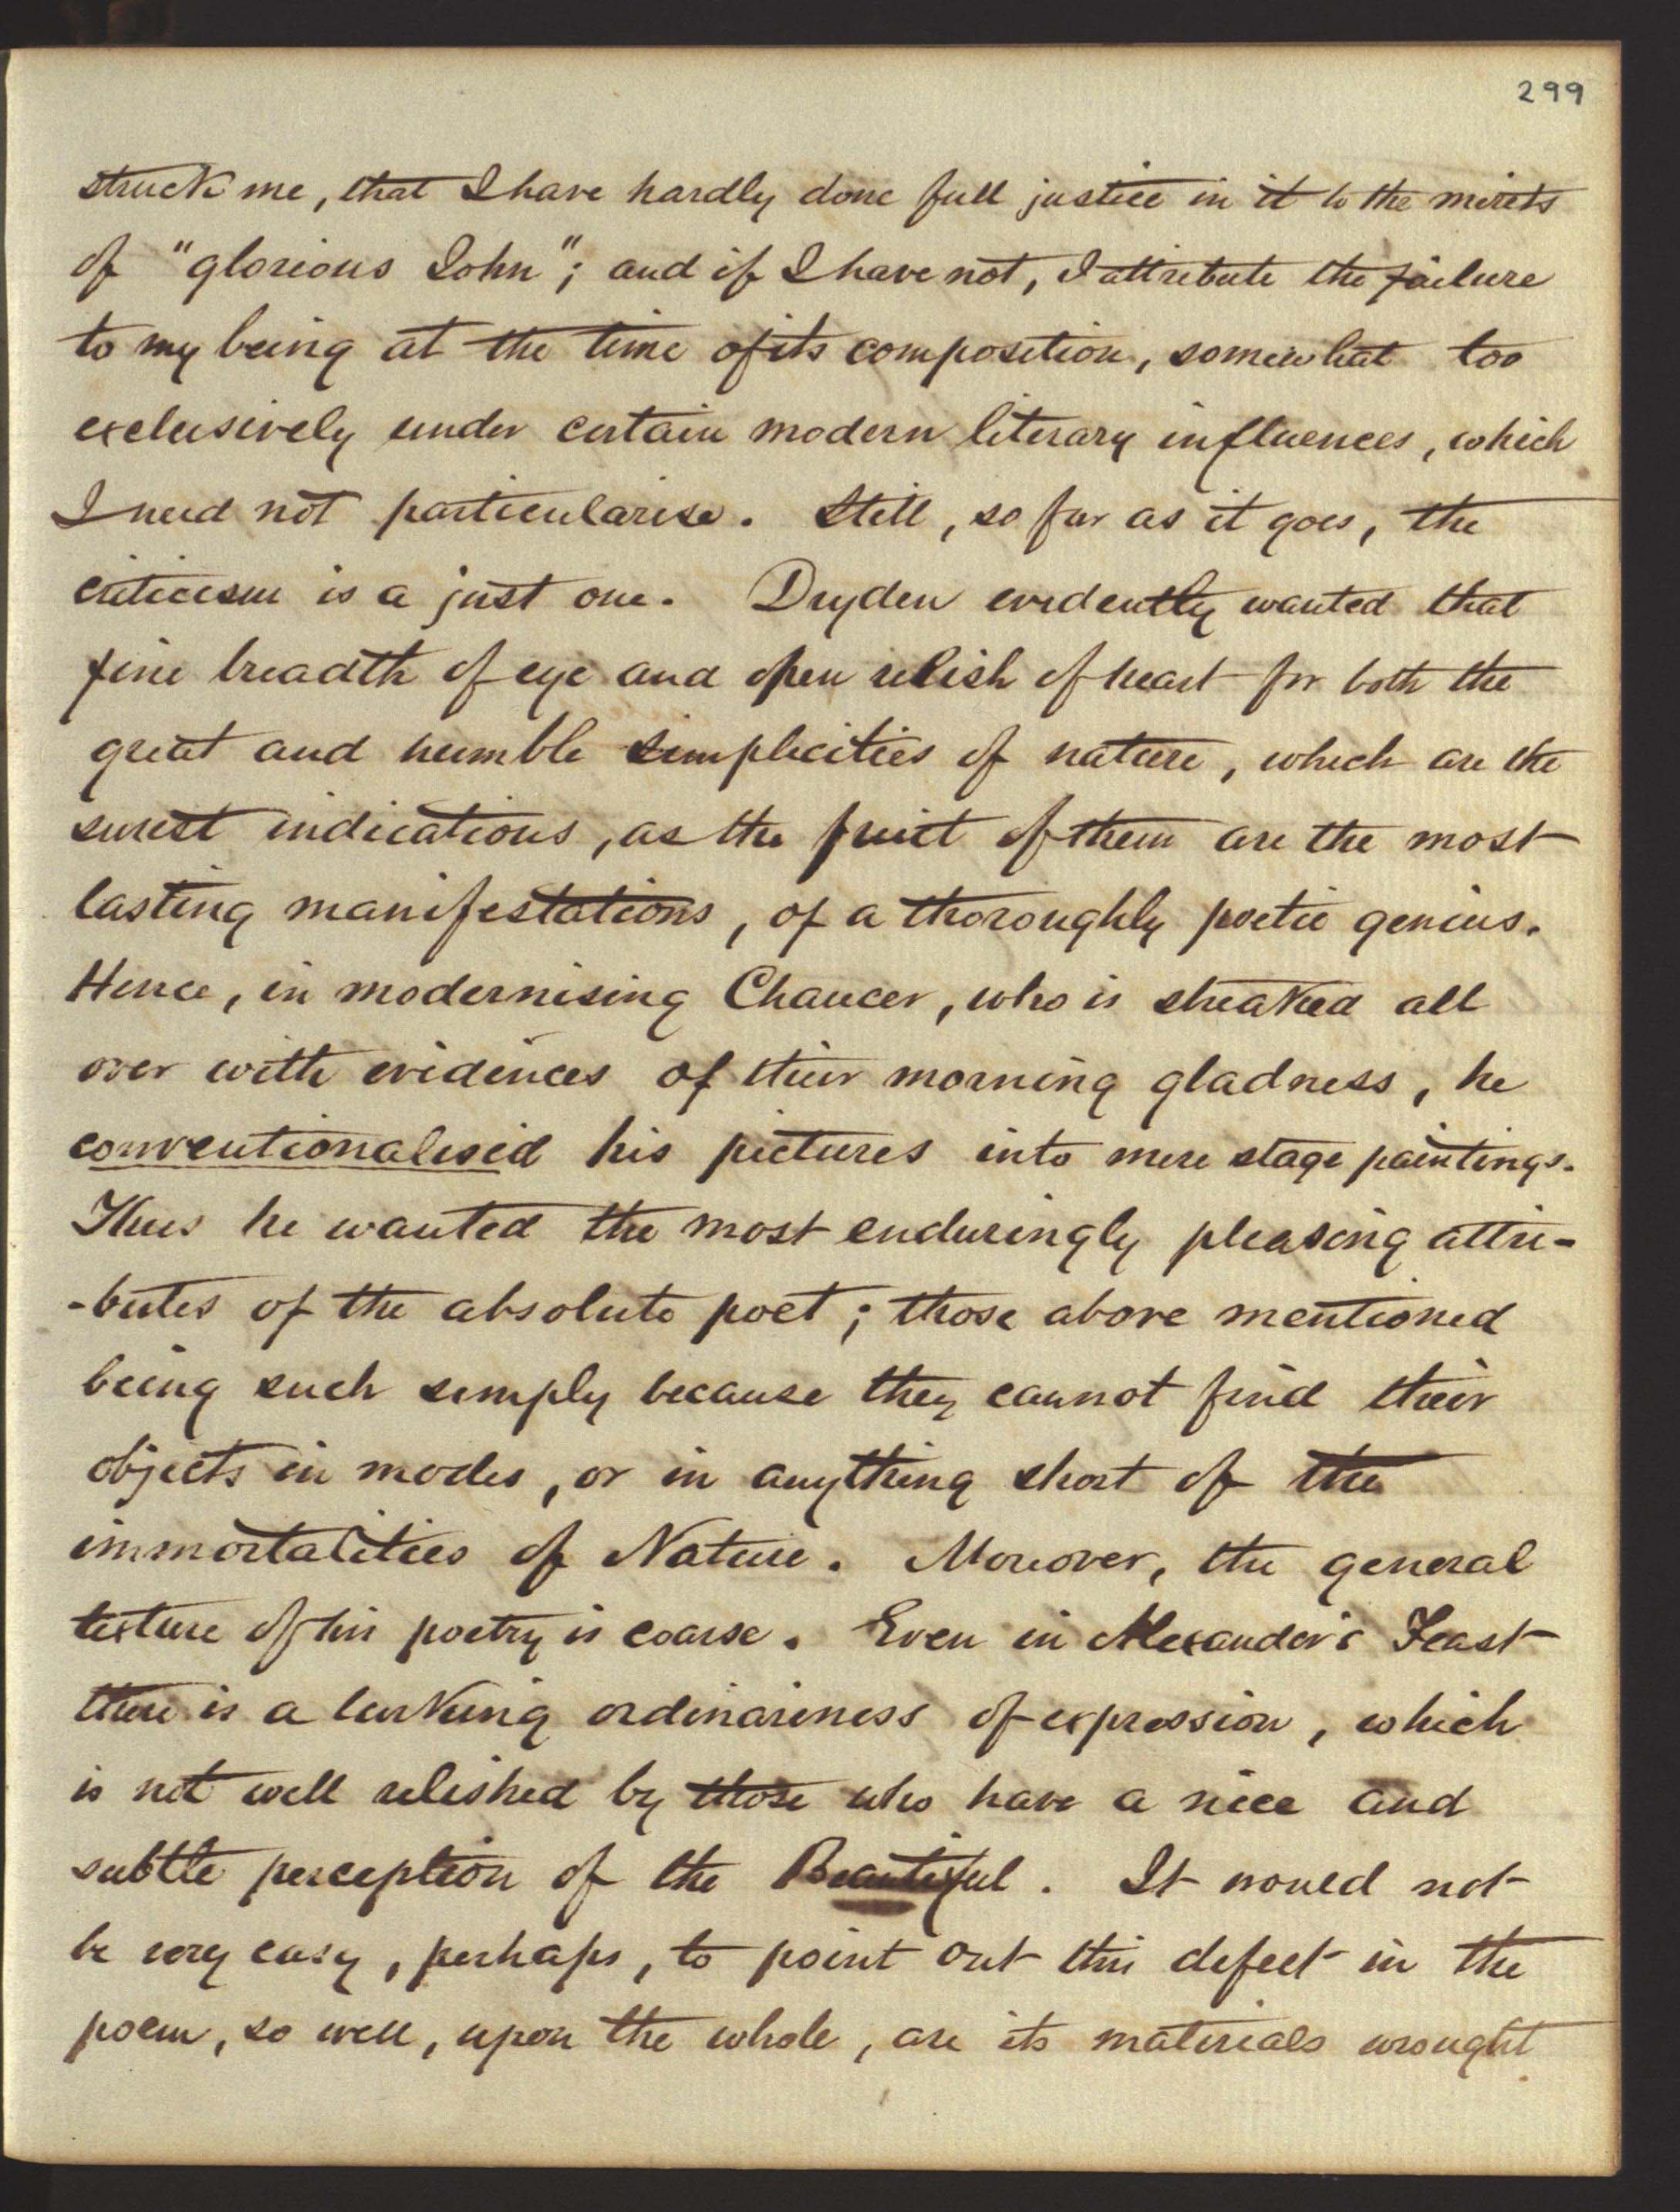 299
struck me, that I have hardly done full justice in it to the merits
of "glorious John"; and if I have not, I attribute the failure
to my being at the time of its composition, somewhat too
exclusively under certain modern literary influences, which
I need not particularise. Still, so far as it goes, the
criticism is a just one. Dryden evidently wanted that
fine breadth of eye and open relish of heart for both the
great and humble simplicities of nature, which are the
surest indications, as the fruit of them are the most
lasting manifestations, of a thoroughly poetic genius.
Hence, in modernising Chaucer, who is streaked all
over with evidences of their morning gladness, he
conventionalised his pictures into mere stage paintings.
Thus he wanted the most enduringly pleasing attri-
-butes of the absolute poet; those above mentioned
being such simply because they cannot find their
objects in modes, or in anything short of the
immortalities of Nature. Moreover, the general
texture of his poetry is coarse. Even in Alexander's Feast
there is a lurking ordinariness of expression, which
is not well relished by those who have a nice and
subtle perception of the Beautiful. It would not
be very easy, perhaps, to point out this defect in the
poem, so well, upon the whole, are its materials wrought